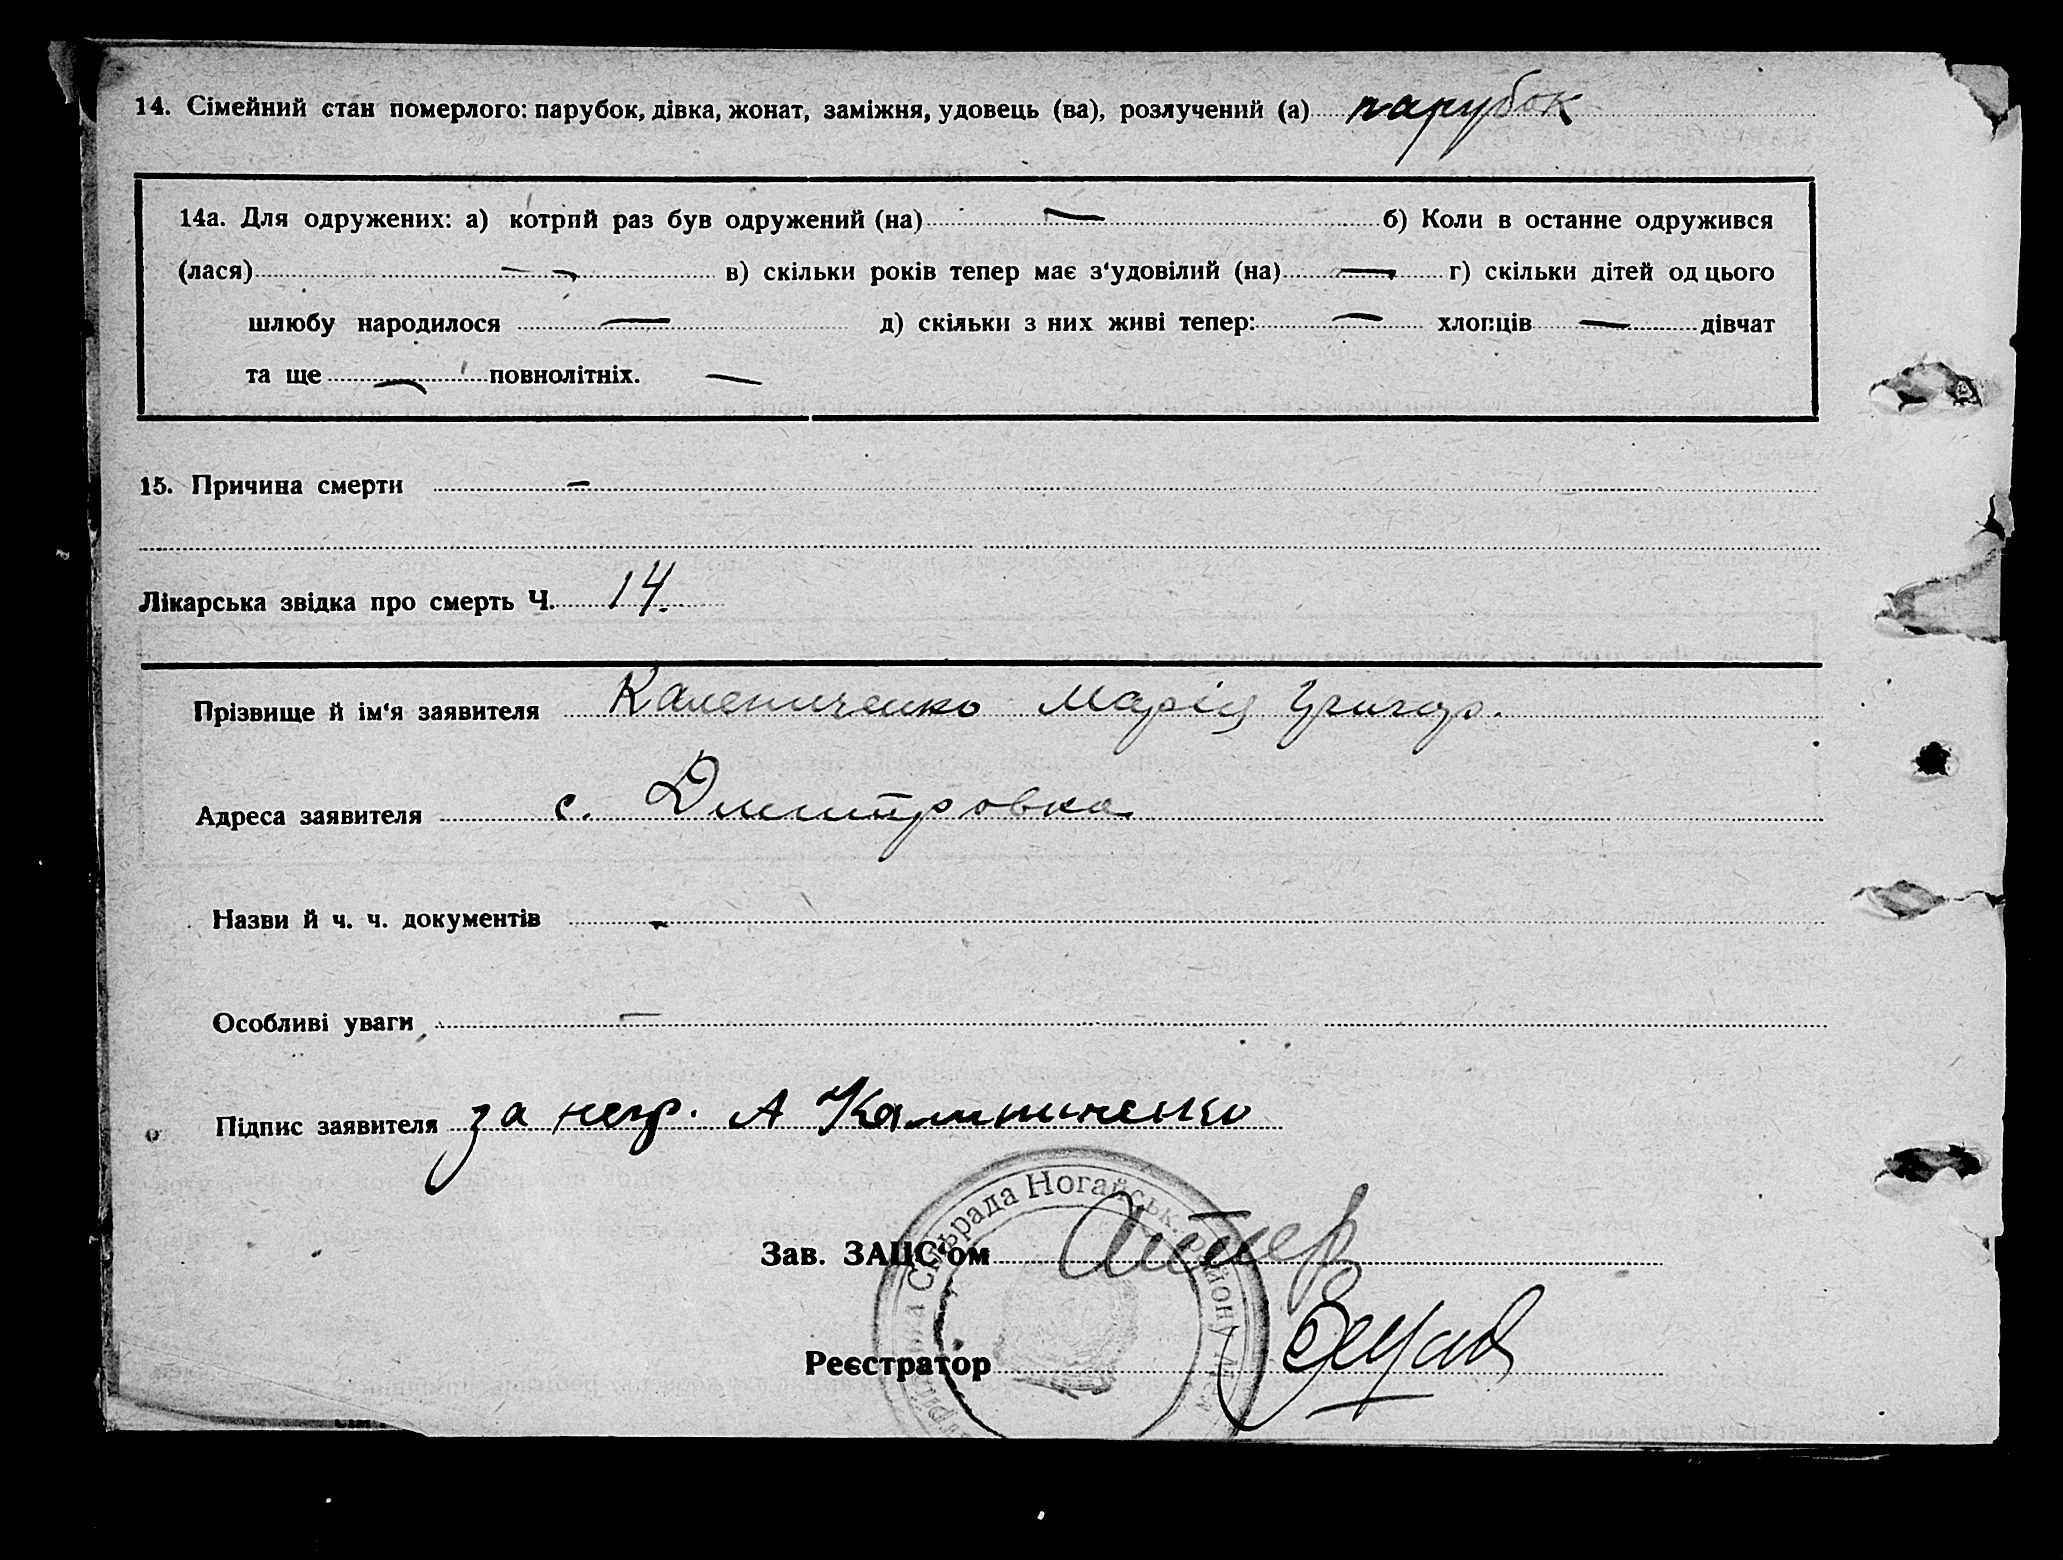 14. Сімейний стан померлого: парубок, дівка, жонат, заміжня, удовець (ва), розлучений (а) парубок
14а. Для одружених: а) котрий раз був одружений (на) — б) Коли в останне одружився
(лася) — в) скільки років тепер має з'удовілий (на) — г) скільки дітей од цього
шлюбу народилося — д) скільки з них живі тепер: — хлопців — дівчат
та ще — повнолітніх. —
15. Причина смерти —
Лікарська звідка про смерть Ч. 14.
Прізвище й ім'я заявителя Калениченко Марія Григор.
Адреса заявителя с. Дмитровка
Назви й ч. ч. документів -
Особливі уваги —
Підпис заявителя за негр. А Калиниченко
Сільрада Ногайськ. району
Зав. ЗАЦС'ом
Реєстратор